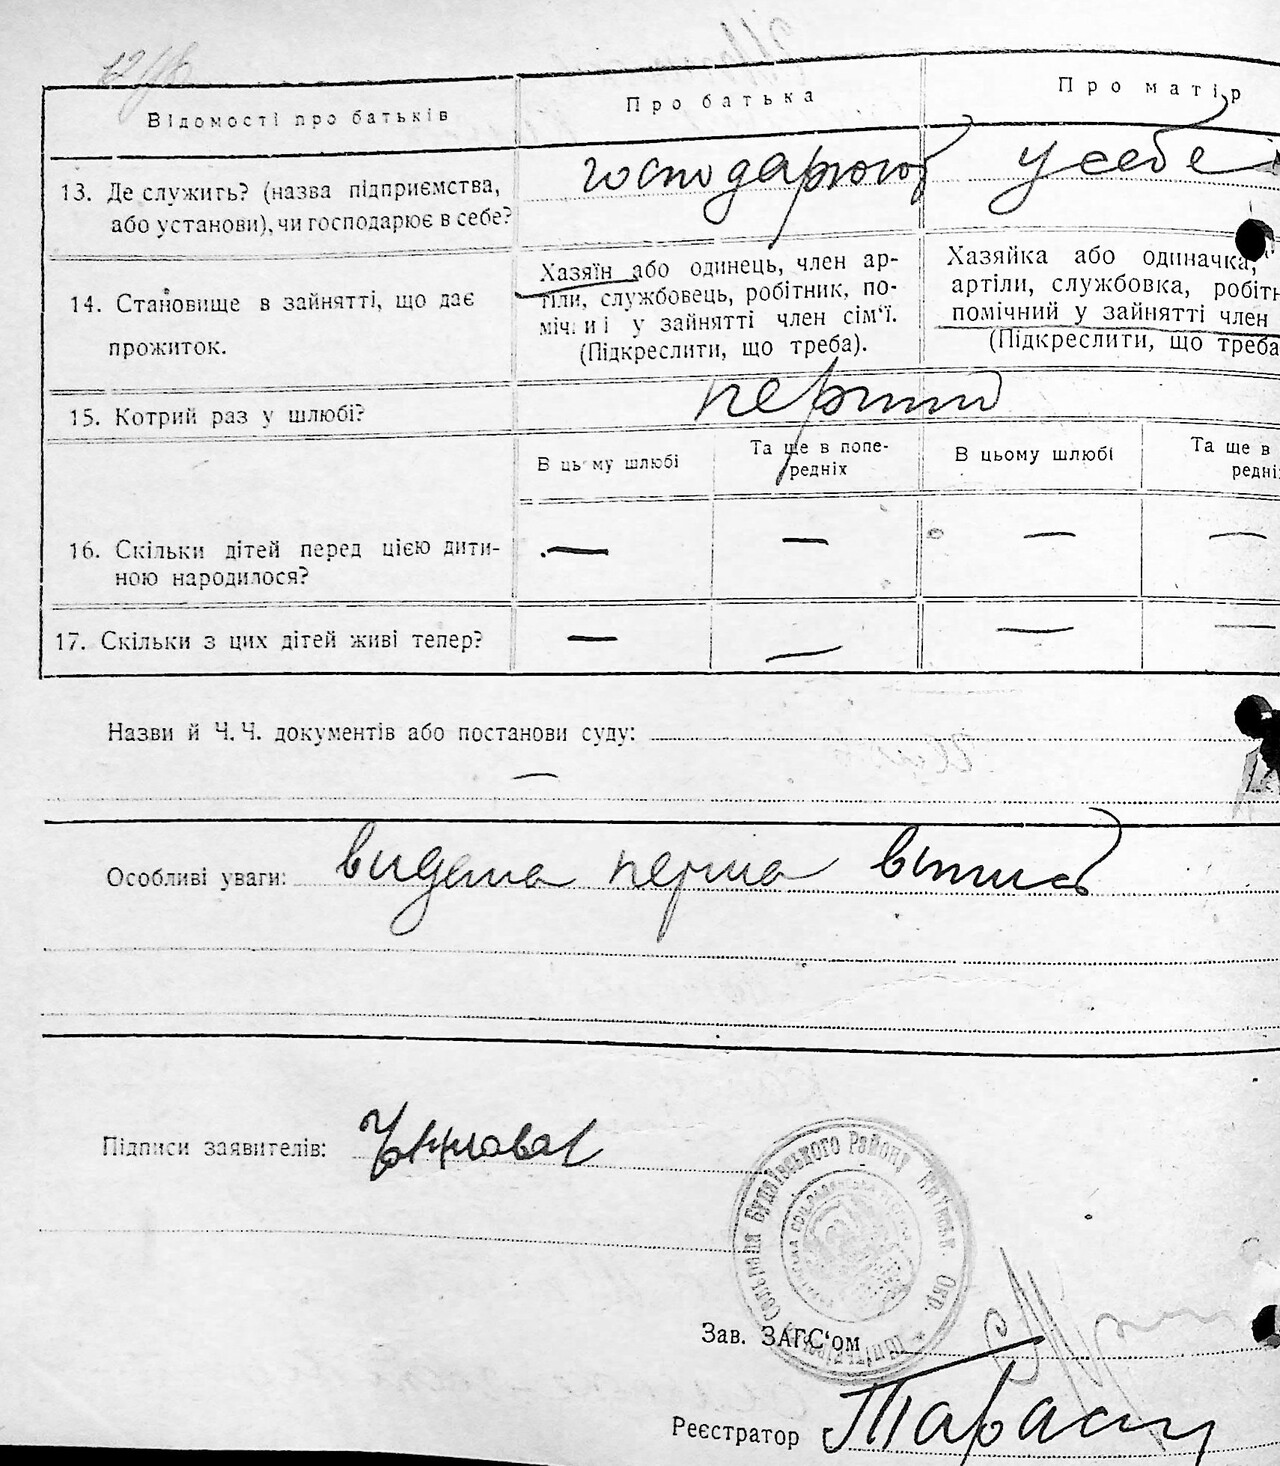 Відомості про батьків
Про батька
Про матір
13. Де служить? (назва підприємства,
або установи), чи господарює в себе?
господарюют у себе
14. Становище в зайнятті, що дає
прожиток.
Хазяїн або одинець, член ар-
тіли, службовець, робітник, по-
міч. и і у зайнятті член сім‘ї.
(Підкреслити, що треба).
Хазяйка або одиначка,
артіли, службовка, робітн
помічний у зайнятті член
(Підкреслити, що треба
15. Котрий раз у шлюбі?
перший
В цьому шлюбі
Та ще в попе-
редніх
В цьому шлюбі
Та ще в
редні
16. Скільки дітей перед цією дити-
ною народилося?
— — — —
17. Скільки з цих дітей живі тепер?
— — — —
Назви й Ч. Ч. документів або постанови суду:
—
Особливі уваги: видана перша випись
Підписи заявителів:
Зав. ЗАГС‘ом
Реєстратор Тарасюк